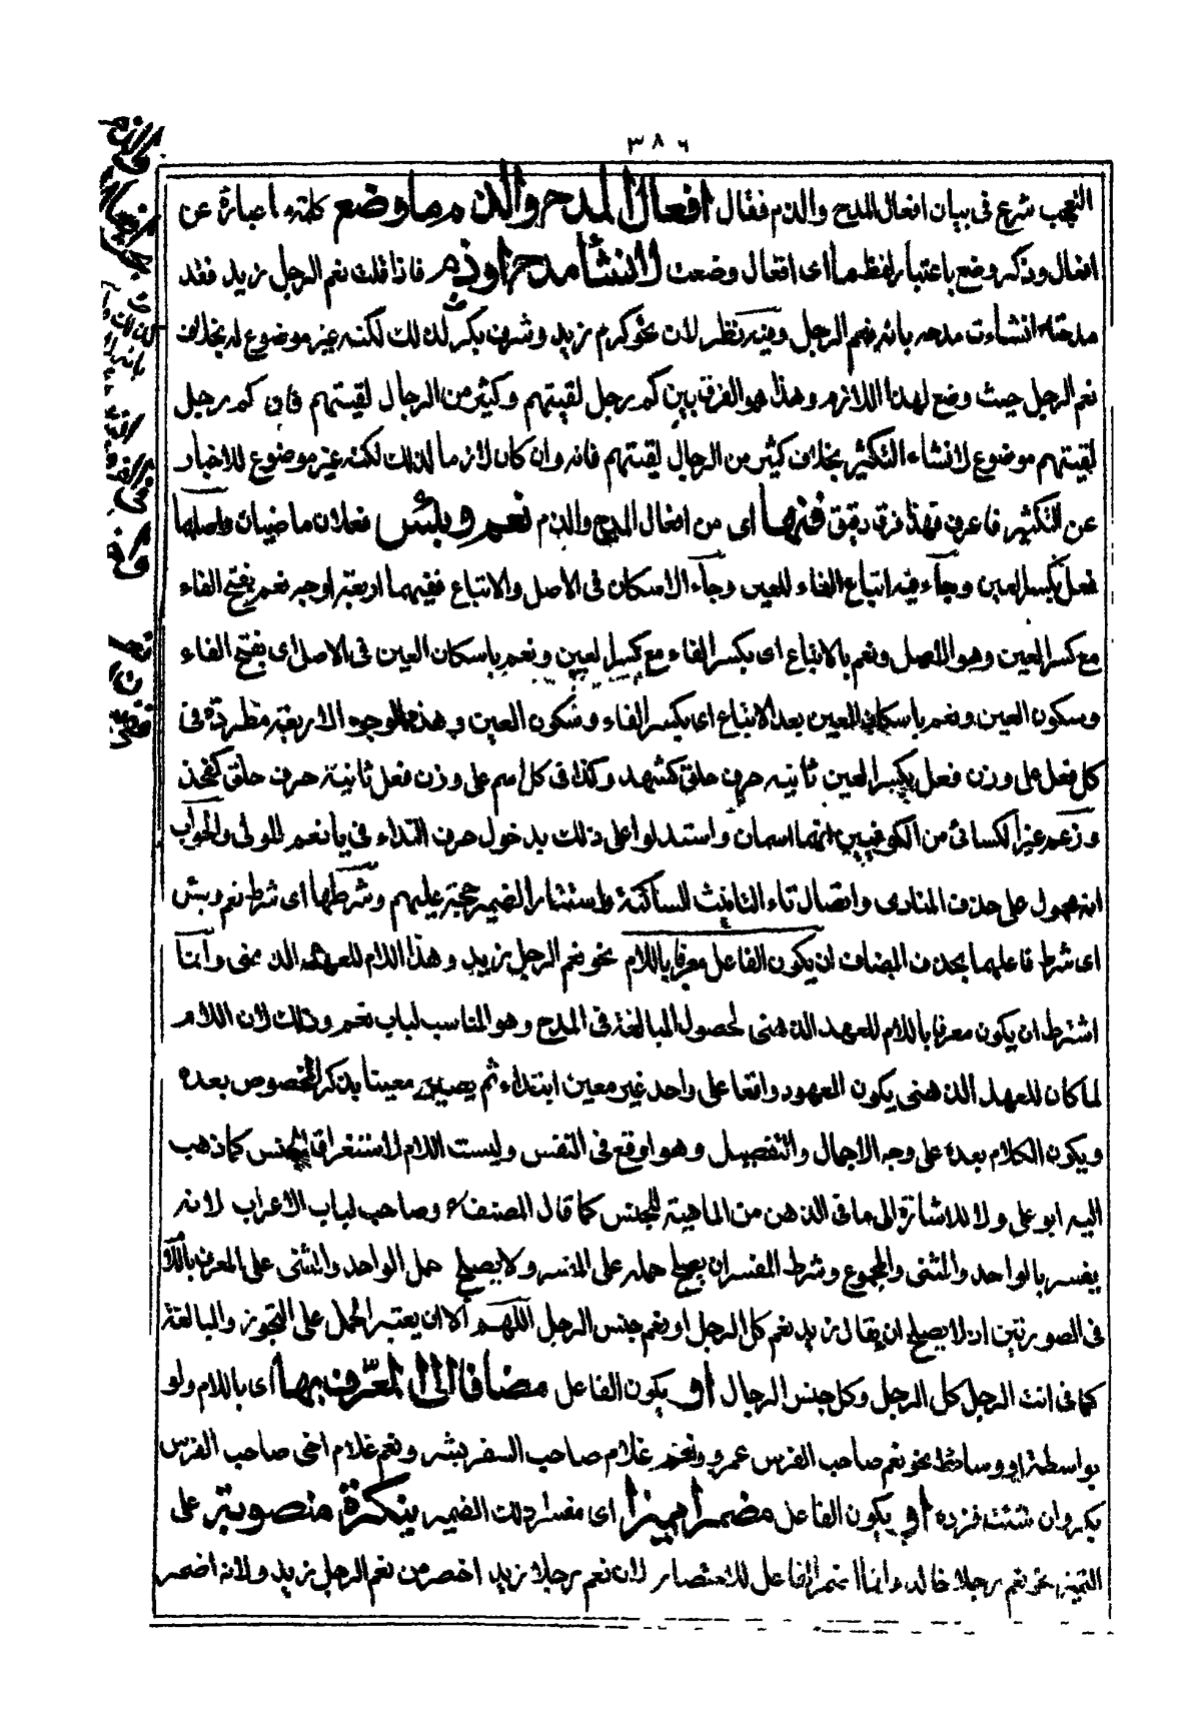 ٣٨٦
التعجب شرع فى بيان افعال المدح والذم فقال افعال المدح والذم ما وضع كلمة ما عبارة عن
افعال وذكر وضع باعتبار لفظ ما اى افعال وضعت لانشأ مدح او ذم فاذا قلت نعم الرجل زيد فقد
مدحته وانشاءت مدحه بانه نعم الرجل وفيه نظر لان نحو كرم زيد وشرف بكر كذلك لكنه غير موضوع له بخلاف
نعم الرجل حيث وضع لهذا اللازم وهذا هو الفرق بين كم رجل لقيتهم وكثير من الرجال لقيتهم فان كم رجل
لقيتهم موضوع لانشاء التكثير بخلاف كثير من الرجال لقيتهم فانه وان كان لازما لذلك لكنه غير موضوع للاخبار
عن التكثير فاعرف فهذا فرق دقيق فمنها اى من افعال المدح والذم نعم وبئس فعلان ماضيان واصلهما
فعل بكسر العين وجآء فيه اتباع الفاء للعين وجآء الاسكان فى الاصل والاتباع ففيهما اربعة اوجه نعم بفتح الفاء
مع كسر العين وهو الاصل ونعم بالاتباع اى بكسر الفاء مع كسر العين ونعم باسكان العين فى الاصل اى بفتح الفاء
وسكون العين ونعم باسكان العين بعد الاتباع اى بكسر الفاء وسكون العين وهذه الوجوه الاربعة مطردة فى
كل فعل على وزن فعل بكسر العين ثانيه حرف حلق كشهد وكذا فى كل اسم على وزن فعل ثانية حرف حلق كفخذ
وزعم غير الكسائى من الكوفيين انهما اسمان واستدلوا على ذلك بدخول حرف النداء فى يا نعم المولى والجواب
انه محمول على حذف المنادى واتصال تاء التانيث الساكنة واستتار الضمير حجة عليهم وشرطها اى شرط نعم وبئس
اى شرط فاعلهما بحذف المضاف ان يكون الفاعل معرفا باللام نحو نعم الرجل زيد وهذا اللام للعهد الذهنى وانما
اشترط ان يكون معرفا باللام للعهد الذهنى لحصول المبالغة فى المدح وهو المناسب لباب نعم وذلك لان اللام
لما كان للعهد الذهنى يكون المعهود واقعا على واحد غير معين ابتداء ثم يصير معينا بذكر المخصوص بعده
ويكون الكلام بعده على وجه الاجمال والتفصيل وهو اوقع فى النفس وليست اللام لاستغراق الجنس كما ذهب
اليه ابو على ولا للاشارة الى ما فى الذهن من الماهية للجنس كما قال المصنف وصاحب لباب الاعراب لانه
يفسر بالواحد والمثنى والمجموع وشرط المفسر ان يصلح حمله على المفسر ولا يصلح حمل الواحد والمثنى على المعرف باللام
فى الصورتين اذ لا يصلح ان يقال زيد نعم كل الرجل او نعم جنس الرجل اللهم الا ان يعتبر الحمل على التجوز والمبالغة
كما فى انت الرجل كل الرجل وكل جنس الرجال او يكون الفاعل مضافا الى المعرف بها اى باللام ولو
بواسطة او وسائط نحو نعم صاحب الفرس عمرو ونعم غلام صاحب السفر بشر ونعم غلام اخى صاحب الفرس
بكر وان شئت فزده او يكون الفاعل مضمرا مميزا اى مفسرا ذلك الضمير بنكرة منصوبة على
التميز نحو نعم رجلا خالد وانما اضمر الفاعل للاختصار لان نعم رجلا زيد اخصر من نعم الرجل زيد ولانه اضمر